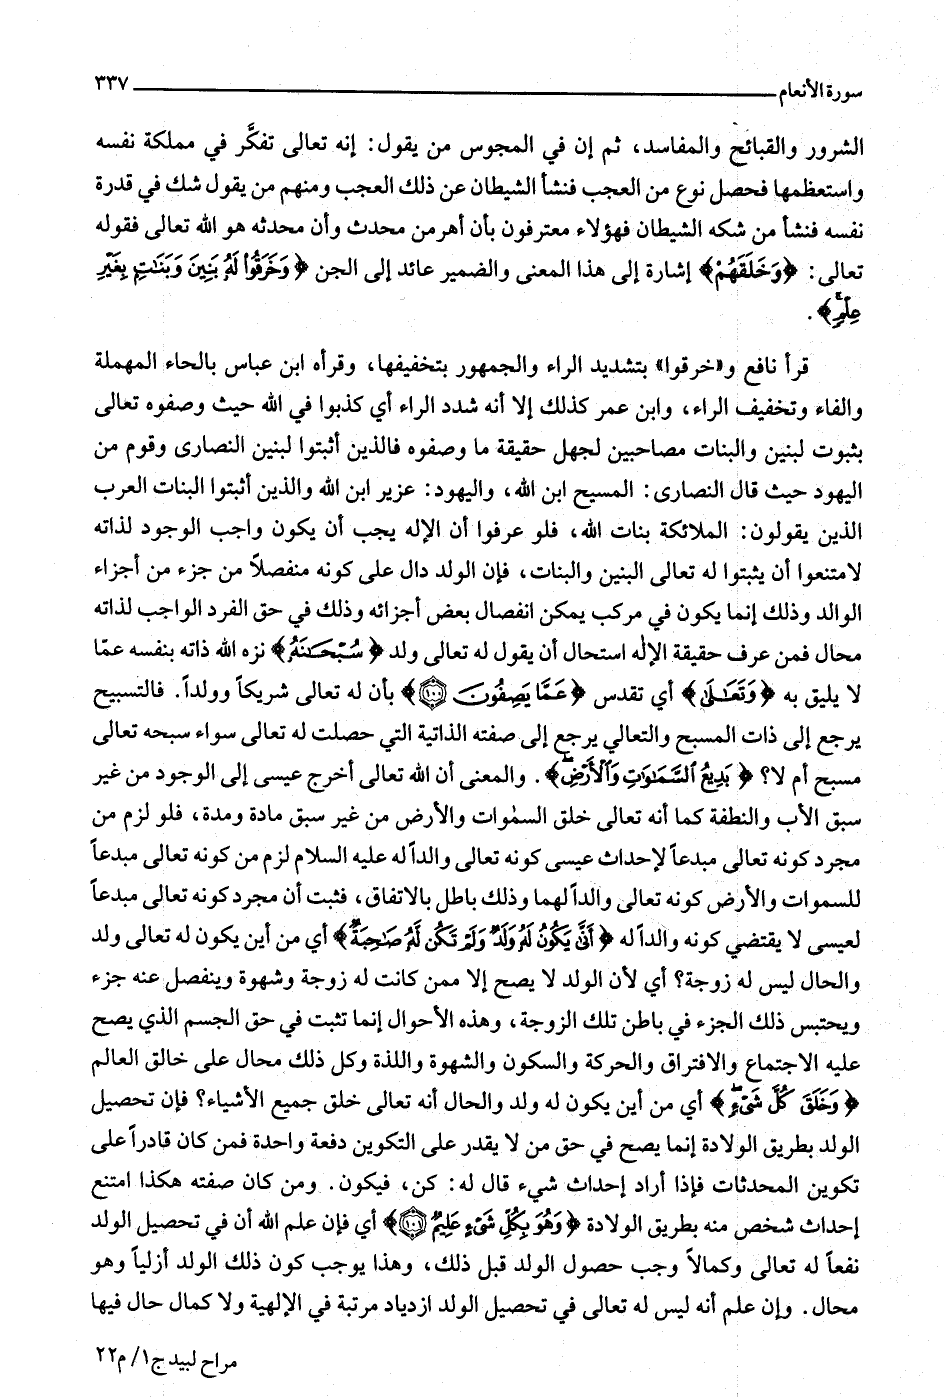 سورة الأنعام ٣٣٧
الشرور والقبائح والمفاسد، ثم إن في المجوس من يقول: إنه تعالى تفكَّر في مملكة نفسه
واستعظمها فحصل نوع من العجب فنشأ الشيطان عن ذلك العجب ومنهم من يقول شك في قدرة
نفسه فنشأ من شكه الشيطان فهؤلاء معترفون بأن أهرمن محدث وأن محدثه هو الله تعالى فقوله
تعالى: ﴿وَخَلَقَهُمْ﴾ إشارة إلى هذا المعنى والضمير عائد إلى الجن ﴿وَخَرَقُوا۟ لَهُۥ بَنِينَ وَبَنَٰتٍۭ بِغَيْرِ
عِلْمٍۚ﴾.
قرأ نافع و«خرقوا» بتشديد الراء والجمهور بتخفيفها، وقرأه ابن عباس بالحاء المهملة
والفاء وتخفيف الراء، وابن عمر كذلك إلا أنه شدد الراء أي كذبوا في الله حيث وصفوه تعالى
بثبوت لبنين والبنات مصاحبين لجهل حقيقة ما وصفوه فالذين أثبتوا لبنين النصارى وقوم من
اليهود حيث قال النصارى: المسيح ابن الله، واليهود: عزير ابن الله والذين أثبتوا البنات العرب
الذين يقولون: الملائكة بنات الله، فلو عرفوا أن الإله يجب أن يكون واجب الوجود لذاته
لامتنعوا أن يثبتوا له تعالى البنين والبنات، فإن الولد دال على كونه منفصلاً من جزء من أجزاء
الوالد وذلك إنما يكون في مركب يمكن انفصال بعض أجزائه وذلك في حق الفرد الواجب لذاته
محال فمن عرف حقيقة الإلٰه استحال أن يقول له تعالى ولد ﴿سُبْحَٰنَهُۥ﴾ نزه الله ذاته بنفسه عمّا
لا يليق به ﴿وَتَعَٰلَىٰ﴾ أي تقدس ﴿عَمَّا يَصِفُونَ ١٠٠﴾ بأن له تعالى شريكاً وولداً. فالتسبيح
يرجع إلى ذات المسبح والتعالي يرجع إلى صفته الذاتية التي حصلت له تعالى سواء سبحه تعالى
مسبح أم لا؟ ﴿بَدِيعُ ٱلسَّمَٰوَٰتِ وَٱلْأَرْضِۖ﴾. والمعنى أن الله تعالى أخرج عيسى إلى الوجود من غير
سبق الأب والنطفة كما أنه تعالى خلق السمٰوات والأرض من غير سبق مادة ومدة، فلو لزم من
مجرد كونه تعالى مبدعاً لإحداث عيسى كونه تعالى والداً له عليه السلام لزم من كونه تعالى مبدعاً
للسموات والأرض كونه تعالى والداً لهما وذلك باطل بالاتفاق، فثبت أن مجرد كونه تعالى مبدعاً
لعيسى لا يقتضي كونه والداً له ﴿أَنَّىٰ يَكُونُ لَهُۥ وَلَدٌ وَلَمْ تَكُن لَّهُۥ صَٰحِبَةٌۖ﴾ أي من أين يكون له تعالى ولد
والحال ليس له زوجة؟ أي لأن الولد لا يصح إلا ممن كانت له زوجة وشهوة وينفصل عنه جزء
ويحتبس ذلك الجزء في باطن تلك الزوجة، وهذه الأحوال إنما تثبت في حق الجسم الذي يصح
عليه الاجتماع والافتراق والحركة والسكون والشهوة واللذة وكل ذلك محال على خالق العالم
﴿وَخَلَقَ كُلَّ شَىْءٍۖ﴾ أي من أين يكون له ولد والحال أنه تعالى خلق جميع الأشياء؟ فإن تحصيل
الولد بطريق الولادة إنما يصح في حق من لا يقدر على التكوين دفعة واحدة فمن كان قادراً على
تكوين المحدثات فإذا أراد إحداث شيء قال له: كن، فيكون. ومن كان صفته هكذا امتنع
إحداث شخص منه بطريق الولادة ﴿وَهُوَ بِكُلِّ شَىْءٍ عَلِيمٌ ١٠١﴾ أي فإن علم الله أن في تحصيل الولد
نفعاً له تعالى وكمالاً وجب حصول الولد قبل ذلك، وهذا يوجب كون ذلك الولد أزلياً وهو
محال. وإن علم أنه ليس له تعالى في تحصيل الولد ازدياد مرتبة في الإلهية ولا كمال حال فيها
مراح لبيد ج١/ م٢٢